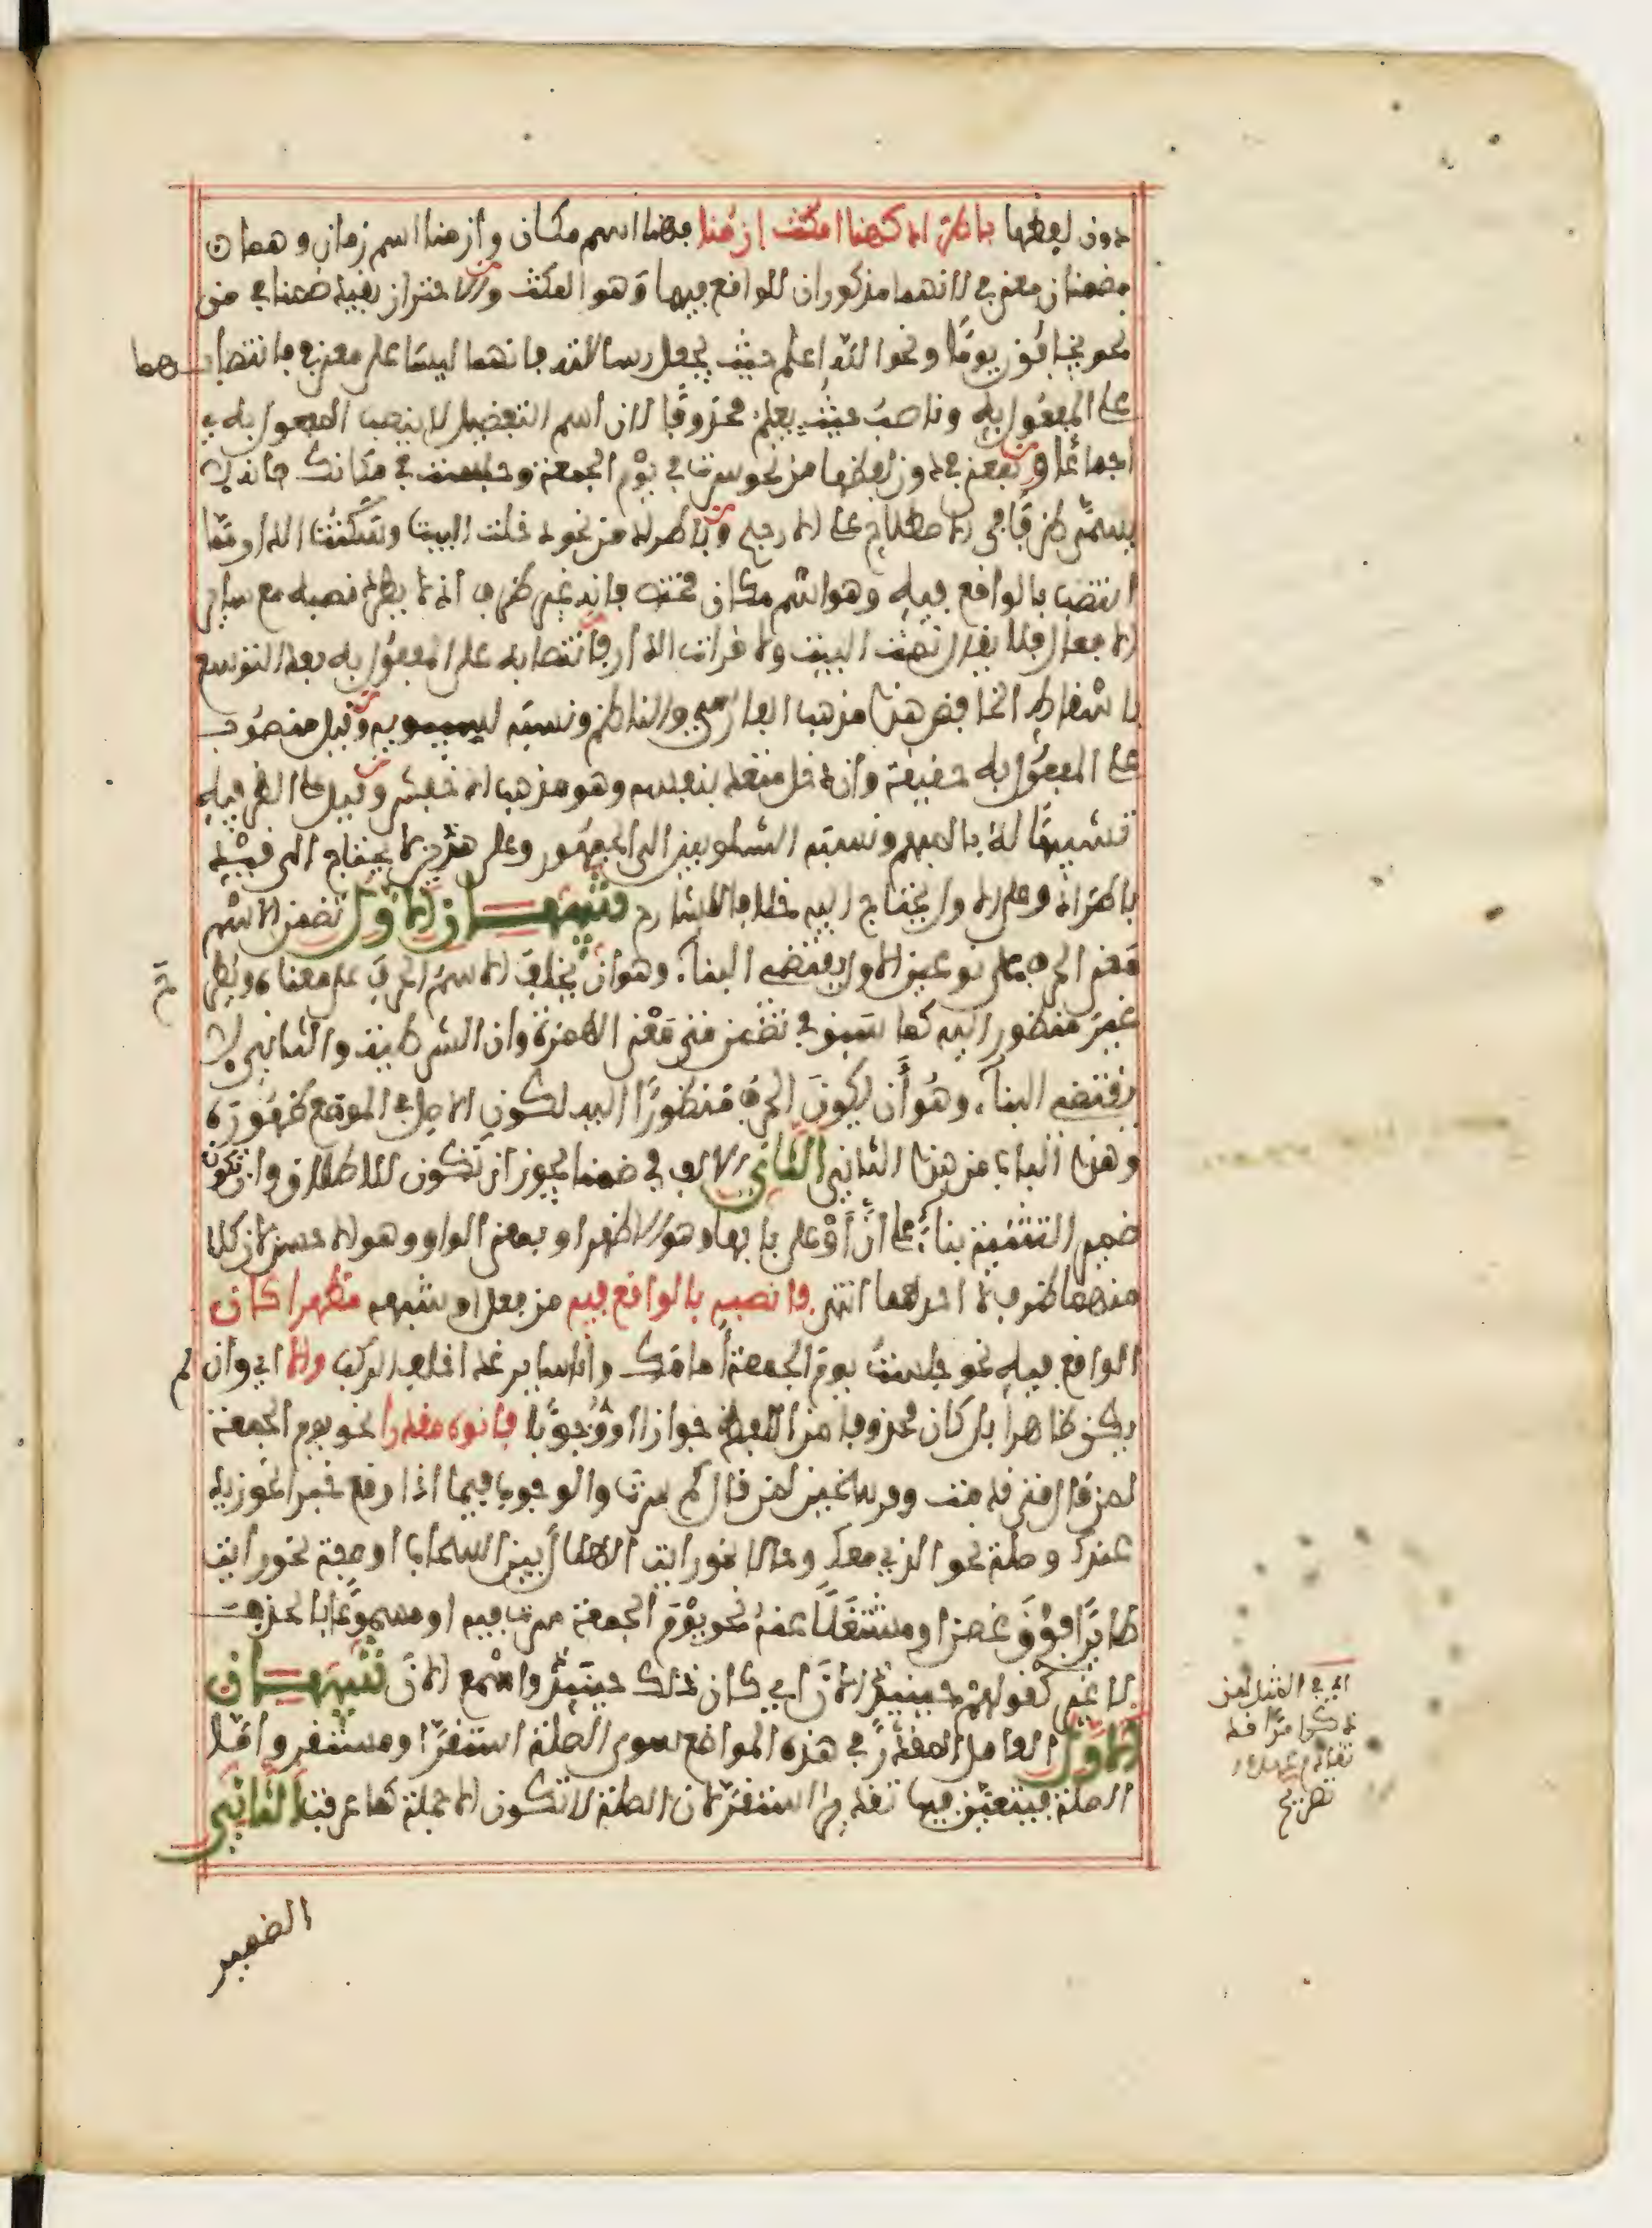 دون لفظها باطراد كهنا امكث ازمنا فهنا اسم مكان وازمنا اسم زمان وهما
مضمنان معنى في لانهما مذكوران للواقع فيهما وهو المكث والاحتراز بقيد ضمنا في من
نحو يخافون يوما ونحو الله اعلم حيث يجعل رسالاته فانهما ليسا على معنى في فانتصابهما
على المفعول به وناصب حيث يعلم محذوفا لان اسم التفضيل لا ينصب المفعول به
اجماعا وبمعنى في دون لفظها من نحو سرت في يوم الجمعة وجلست في مكانك فانه لا
يسمى ظرفا في الاصطلاح على الارجح وباطراد من نحو دخلت البيت وسكنت الدار مما
انتصب بالواقع فيه وهو اسم مكان مختص فانه غير ظرف اذ لا يطرد نصبه مع سائر
الافعال فلا يقال نمت البيت ولا قرات الدار فانتصابه على المفعول به بعد التوسع
باسقاط الخافض هذا مذهب الفارسي والناظم ونسبه لسيبويه وقيل منصوب
على المفعول به حقيقة وان دخل متعد بنفسه وهو مذهب الاخفش وقيل على الظرفية
تشبيها له بالمبهم ونسبه الشلوبين الى الجمهور وعلى هذين لا يحتاج الى قيد
باطراد وعلى الاول يحتاج اليه خلافا للشارح تنبيهان الاول تضمن الاسم
معنى الحرف على نوعين الاول يقتضي البناء وهو ان يخلف الاسم الحرف على معناه ويطرح
غير منظور اليه كما سبق في تضمن متى معنى الهمزة وان الشرطية والثاني لا
يقتضي البناء وهو أن يكون الحرف منظورا اليه لكون الاصل في الموضع ظهوره
وهذا الباب من هذا الثاني الثاني الالف في ضمنا يجوز ان تكون للاطلاق وان تكون
ضمير التثنية بناء على أن أو على بابها وهو الاظهر او بمعنى الواو وهو الاحسن لان كلا
منهما ظرف لا احدهما انتهى فانصبه بالواقع فيه من فعل او شبهه مظهرا كان
الواقع فيه نحو جلست يوم الجمعة أمامك وانا سائر غدا خلف الركب والا اي وان لم
يكن ظاهرا بل كان محذوفا من اللفظ جوازا او وجوبا فانوه مقدرا نحو يوم الجمعة
لمن قال متى قدمت وفرسخين لمن قال كم سرت والوجوب فيما اذا وقع خبرا نحو زيد
عندك وصلة نحو الذي معك وحالا نحو رايت الهلال بين السحاب او صفة نحو رايت
طائرا فوق غصن او مشتغلا عنه نحو يوم الجمعة سرت فيه او مسموعا بالحذف
لا غير كقولهم حينئذ الان اي كان ذلك حينئذ واسمع الان تنبيهان
الاول العامل المقدر في هذه المواضع سوى الصلة استقر او مستقر واما
الصلة فيتعين فيها تقدير استقر لان الصلة لا تكون الا جملة كما عرفت الثاني
الضمير